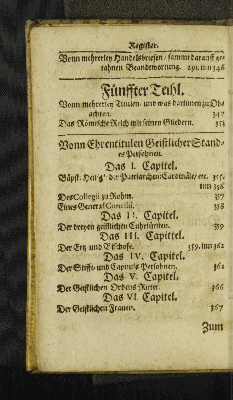 Register.
Vonn mehrerley Handelsbriefen / sammt darauff ge-
rahnen Beandtwortung. 291. inn 346
Fünffter Teihl.
Vonn mehrerley Titulen / und was darinnen zu Ob-
achten. 342
Das Römische Reich mit seinen Gliedern. 353
Vonn Ehrentitulen Geistlicher Stand-
es Persohnen.
Das I. Capitel.
Bäpst. Heil'g': der Patriarchen: Cardinäle / etc. 355.
inn 356
Des Collegii zu Rohm. 357
Eines General Concilii. 358
Das II. Capitel.
Der dreyen geistlichen Cuhrfürsten. 359
Das III. Capittel.
Der Ertz und Bischofe. 359. inn 362
Das IV. Capitel.
Der Stifft- und Capituls Persohnen. 362
Das V. Capitel.
Der Geistlichen Ordens Ritter. 366
Das VI. Capitel.
Der Geistlichen Frauen. 367
Zum